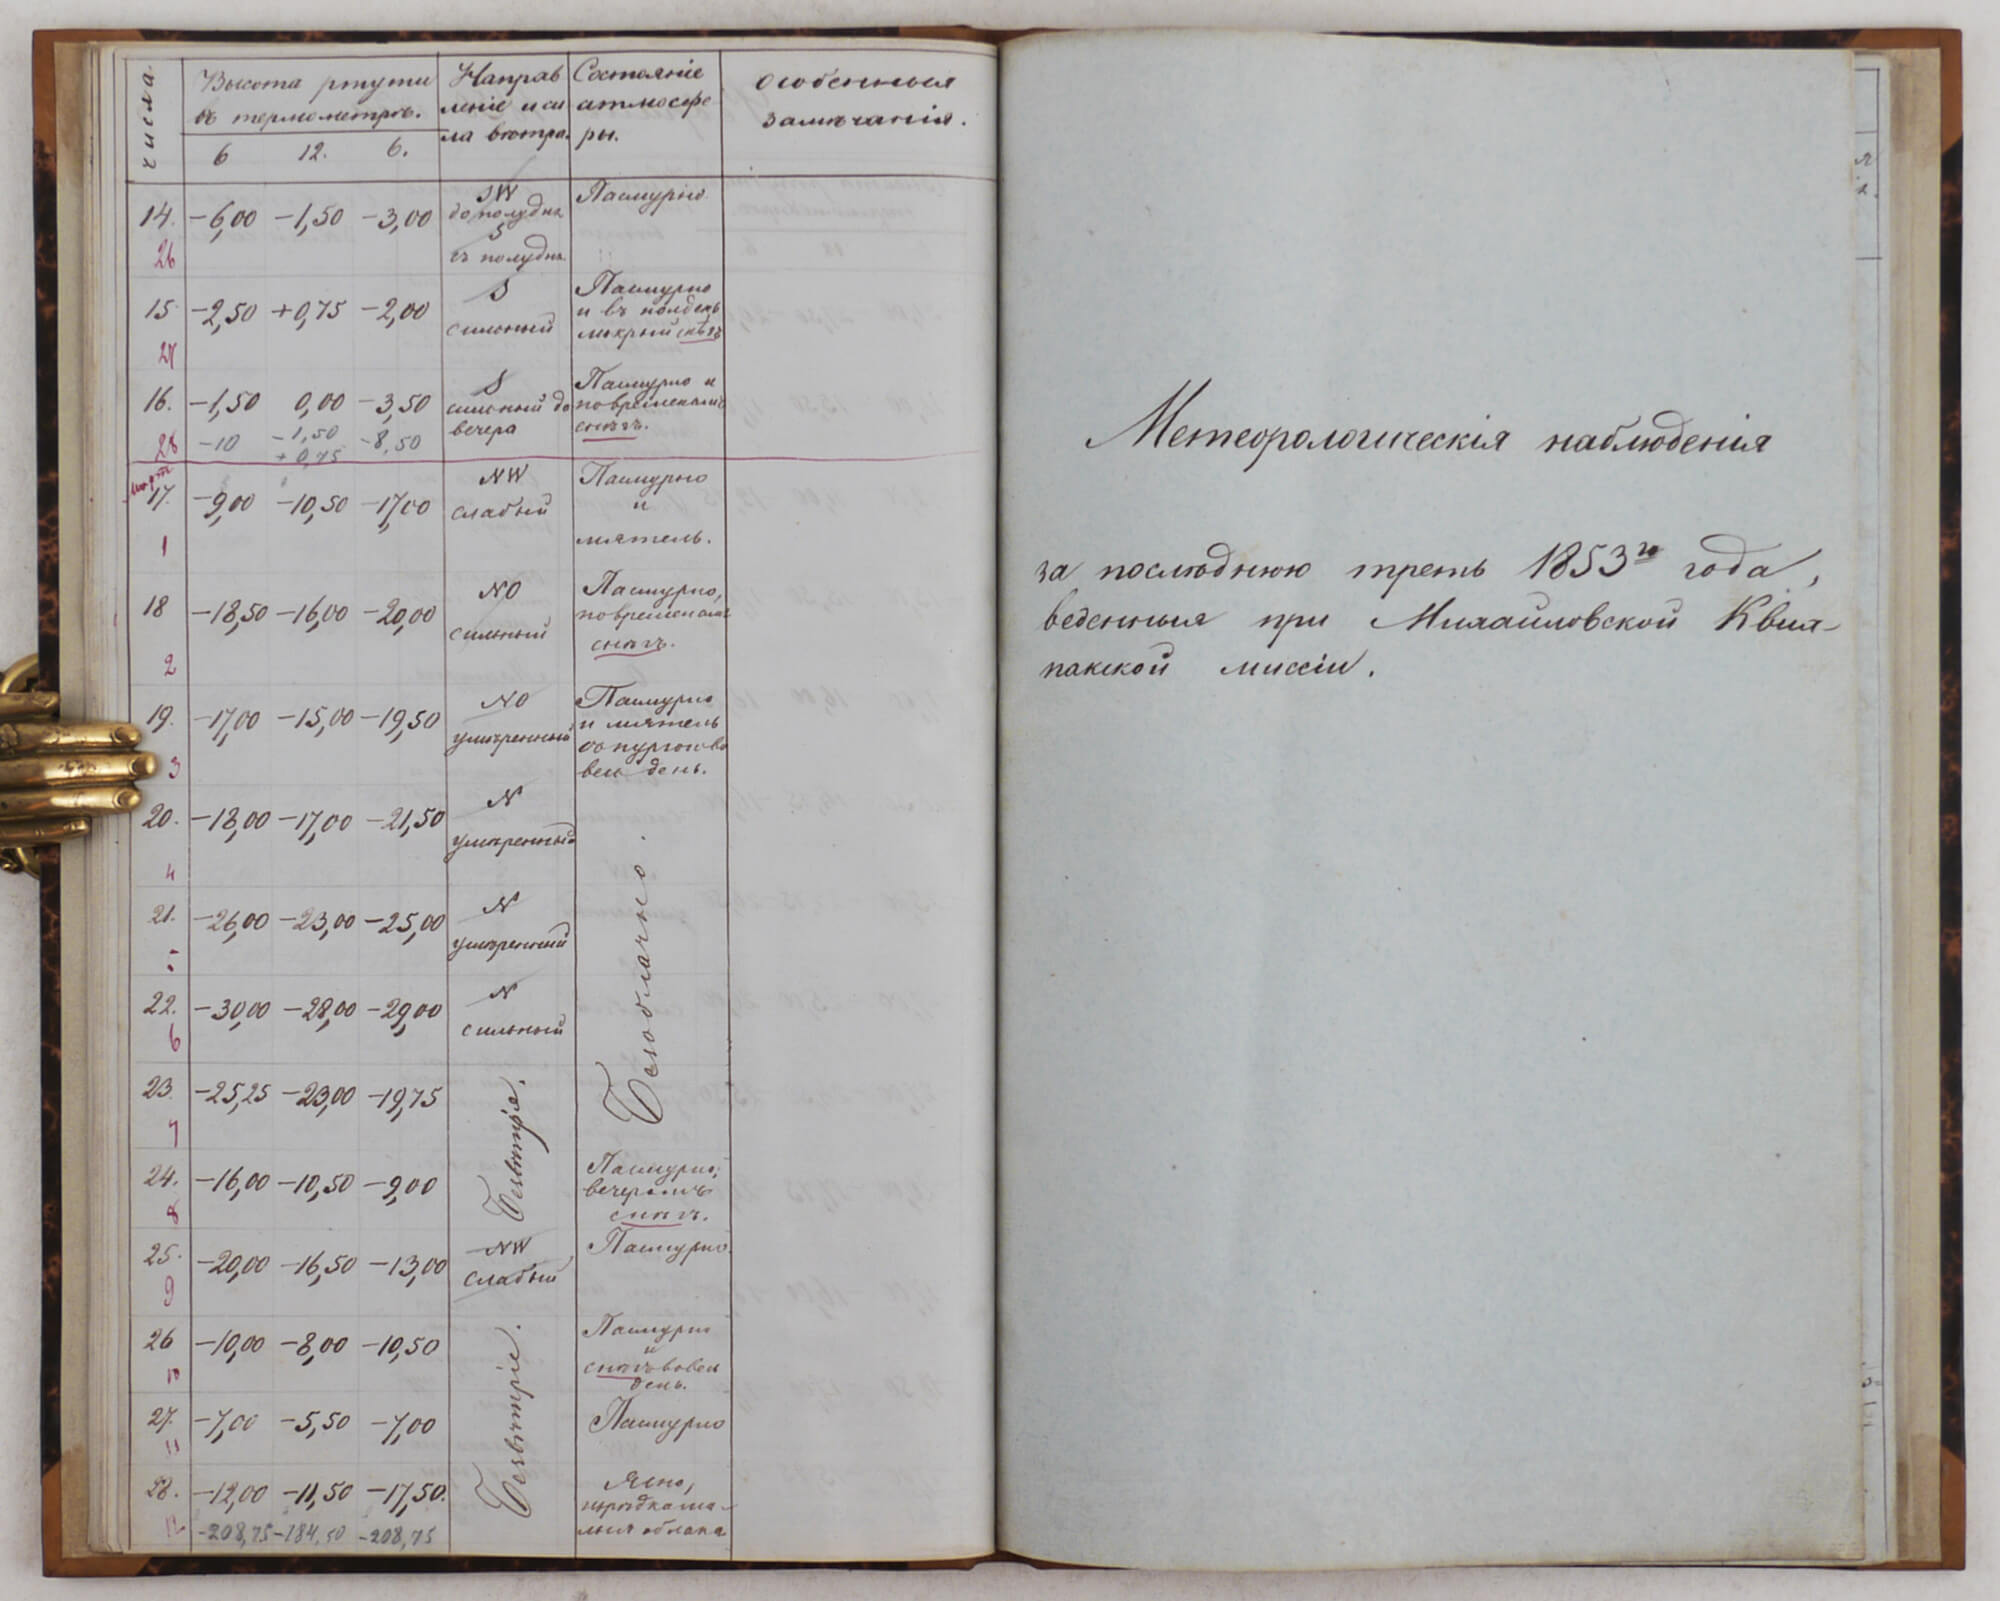 числа.
Высота ртути
въ термометрѣ.
6 12. 6.
Направ
леніе и си
ла вѣтра.
Состояніе
атмосфе
ры.
Особенныя
замѣчанія.
14. −6,00 −1,50 −3,00
26
SW
до полудня
S
съ полудня
Пасмурно
15 −2,50 +0,75 −2,00
27
S
сильный
Пасмурно
и въ полдень
мокрый снѣгъ
16. −1,50 0,00 −3,50
28 −10 −1,50 −8,50
+0,75
S
сильный до
вечера
Пасмурно и
повременамъ
снѣгъ.
Мартъ
17. −9,00 −10,50 −17,00
1
NW
слабый
Пасмурно
и
мятель.
18 −18,50 −16,00 −20,00
2
NO
сильный
Пасмурно,
повременамъ
снѣгъ.
19. −17,00 −15,00 −19,50
3
NO
умѣренный
Пасмурно
и мятель
съ пургою во
весь день.
20. −18,00 −17,00 −21,50
4
N
умѣренный
21. −26,00 −23,00 −25,00
5
N
умѣренный
22. −30,00 −28,00 −29,00
6
N
сильный
Безоблачно.
23. −25,25 −23,00 −19,75
7
Безвѣтріе.
24. −16,00 −10,50 −9,00
8
Пасмурно,
вечеромъ
снѣгъ.
25. −20,00 −16,50 −13,00
9
NW
слабый
Пасмурно.
26 −10,00 −8,00 −10,50
10
Пасмурно
и
снѣгъ во весь
день.
27. −7,00 −5,50 −7,00
11
Безвѣтріе.
Пасмурно
28. −12,00 −11,50 −17,50.
12 −208,75 −184,50 −208,75
Ясно,
изрѣдка ма-
лыя облака
Метеорологическія наблюденія
за послѣднюю треть 1853го года,
веденныя при Михайловской Квих-
пакской миссіи.